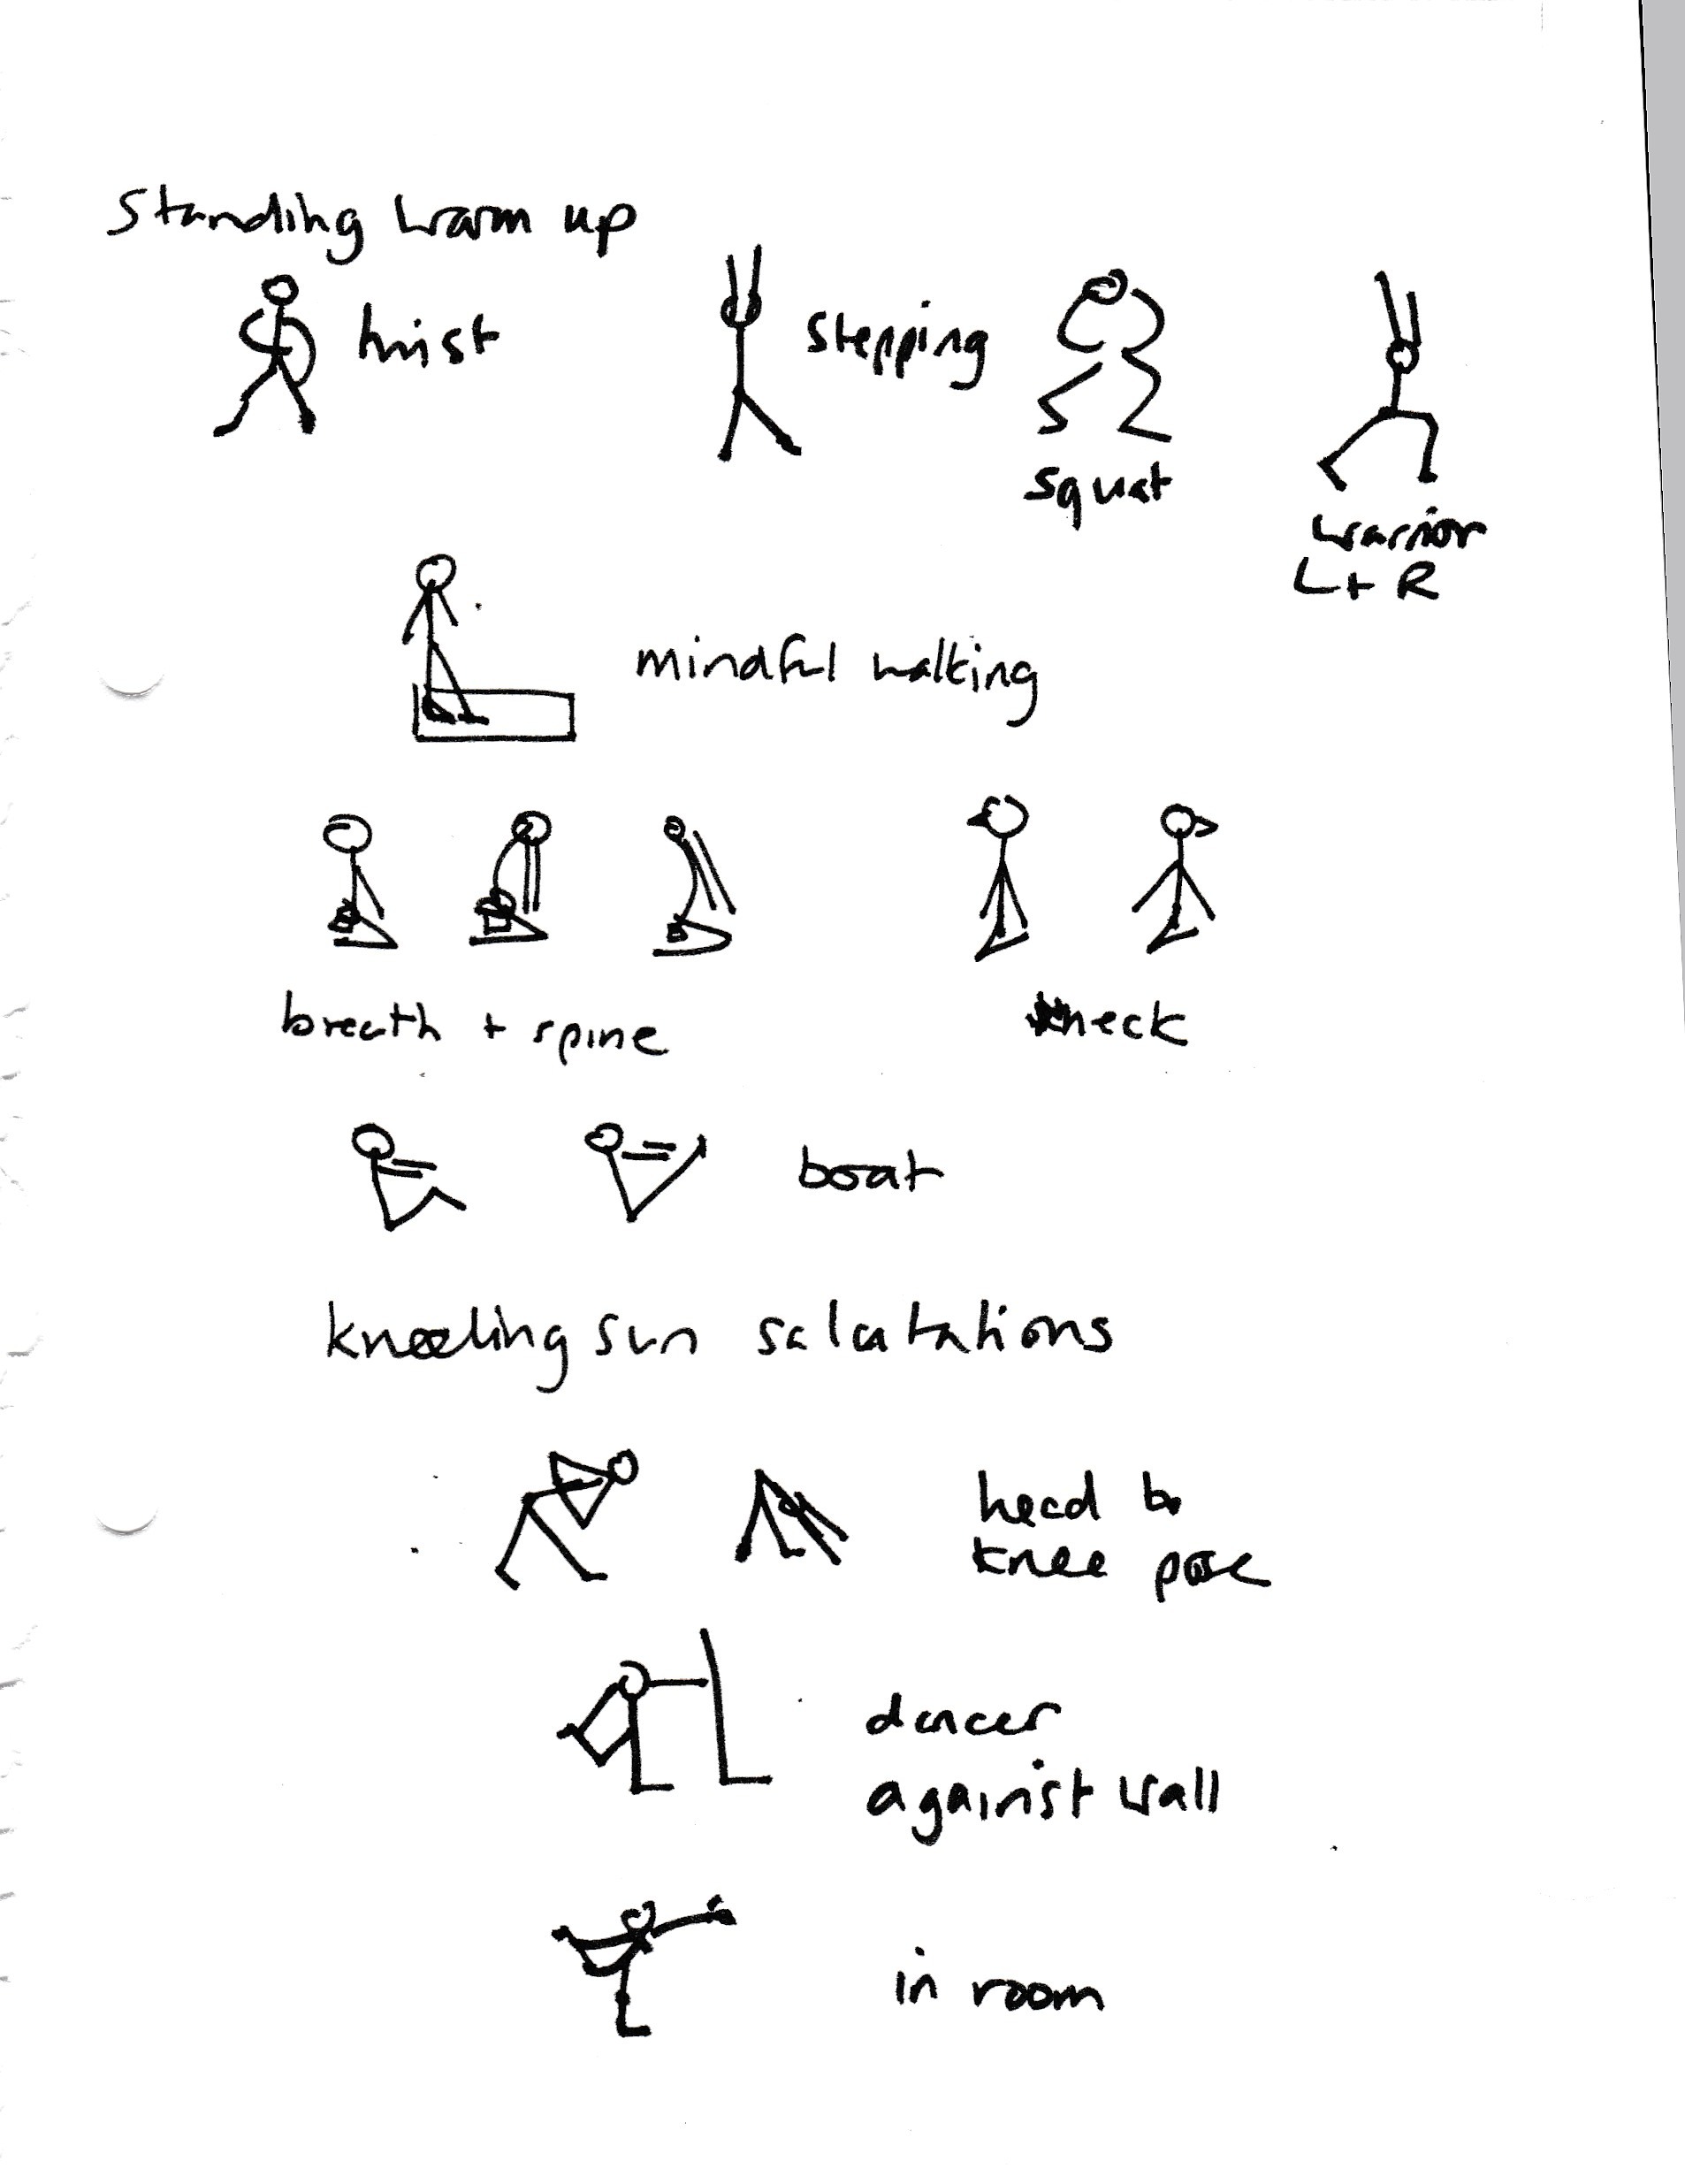 Standing warm up
twist
stepping
squat
warrior
L + R
mindful walking
breath + spine
neck
boat
kneeling sun salutations
head to
knee pose
dancer
against wall
in room